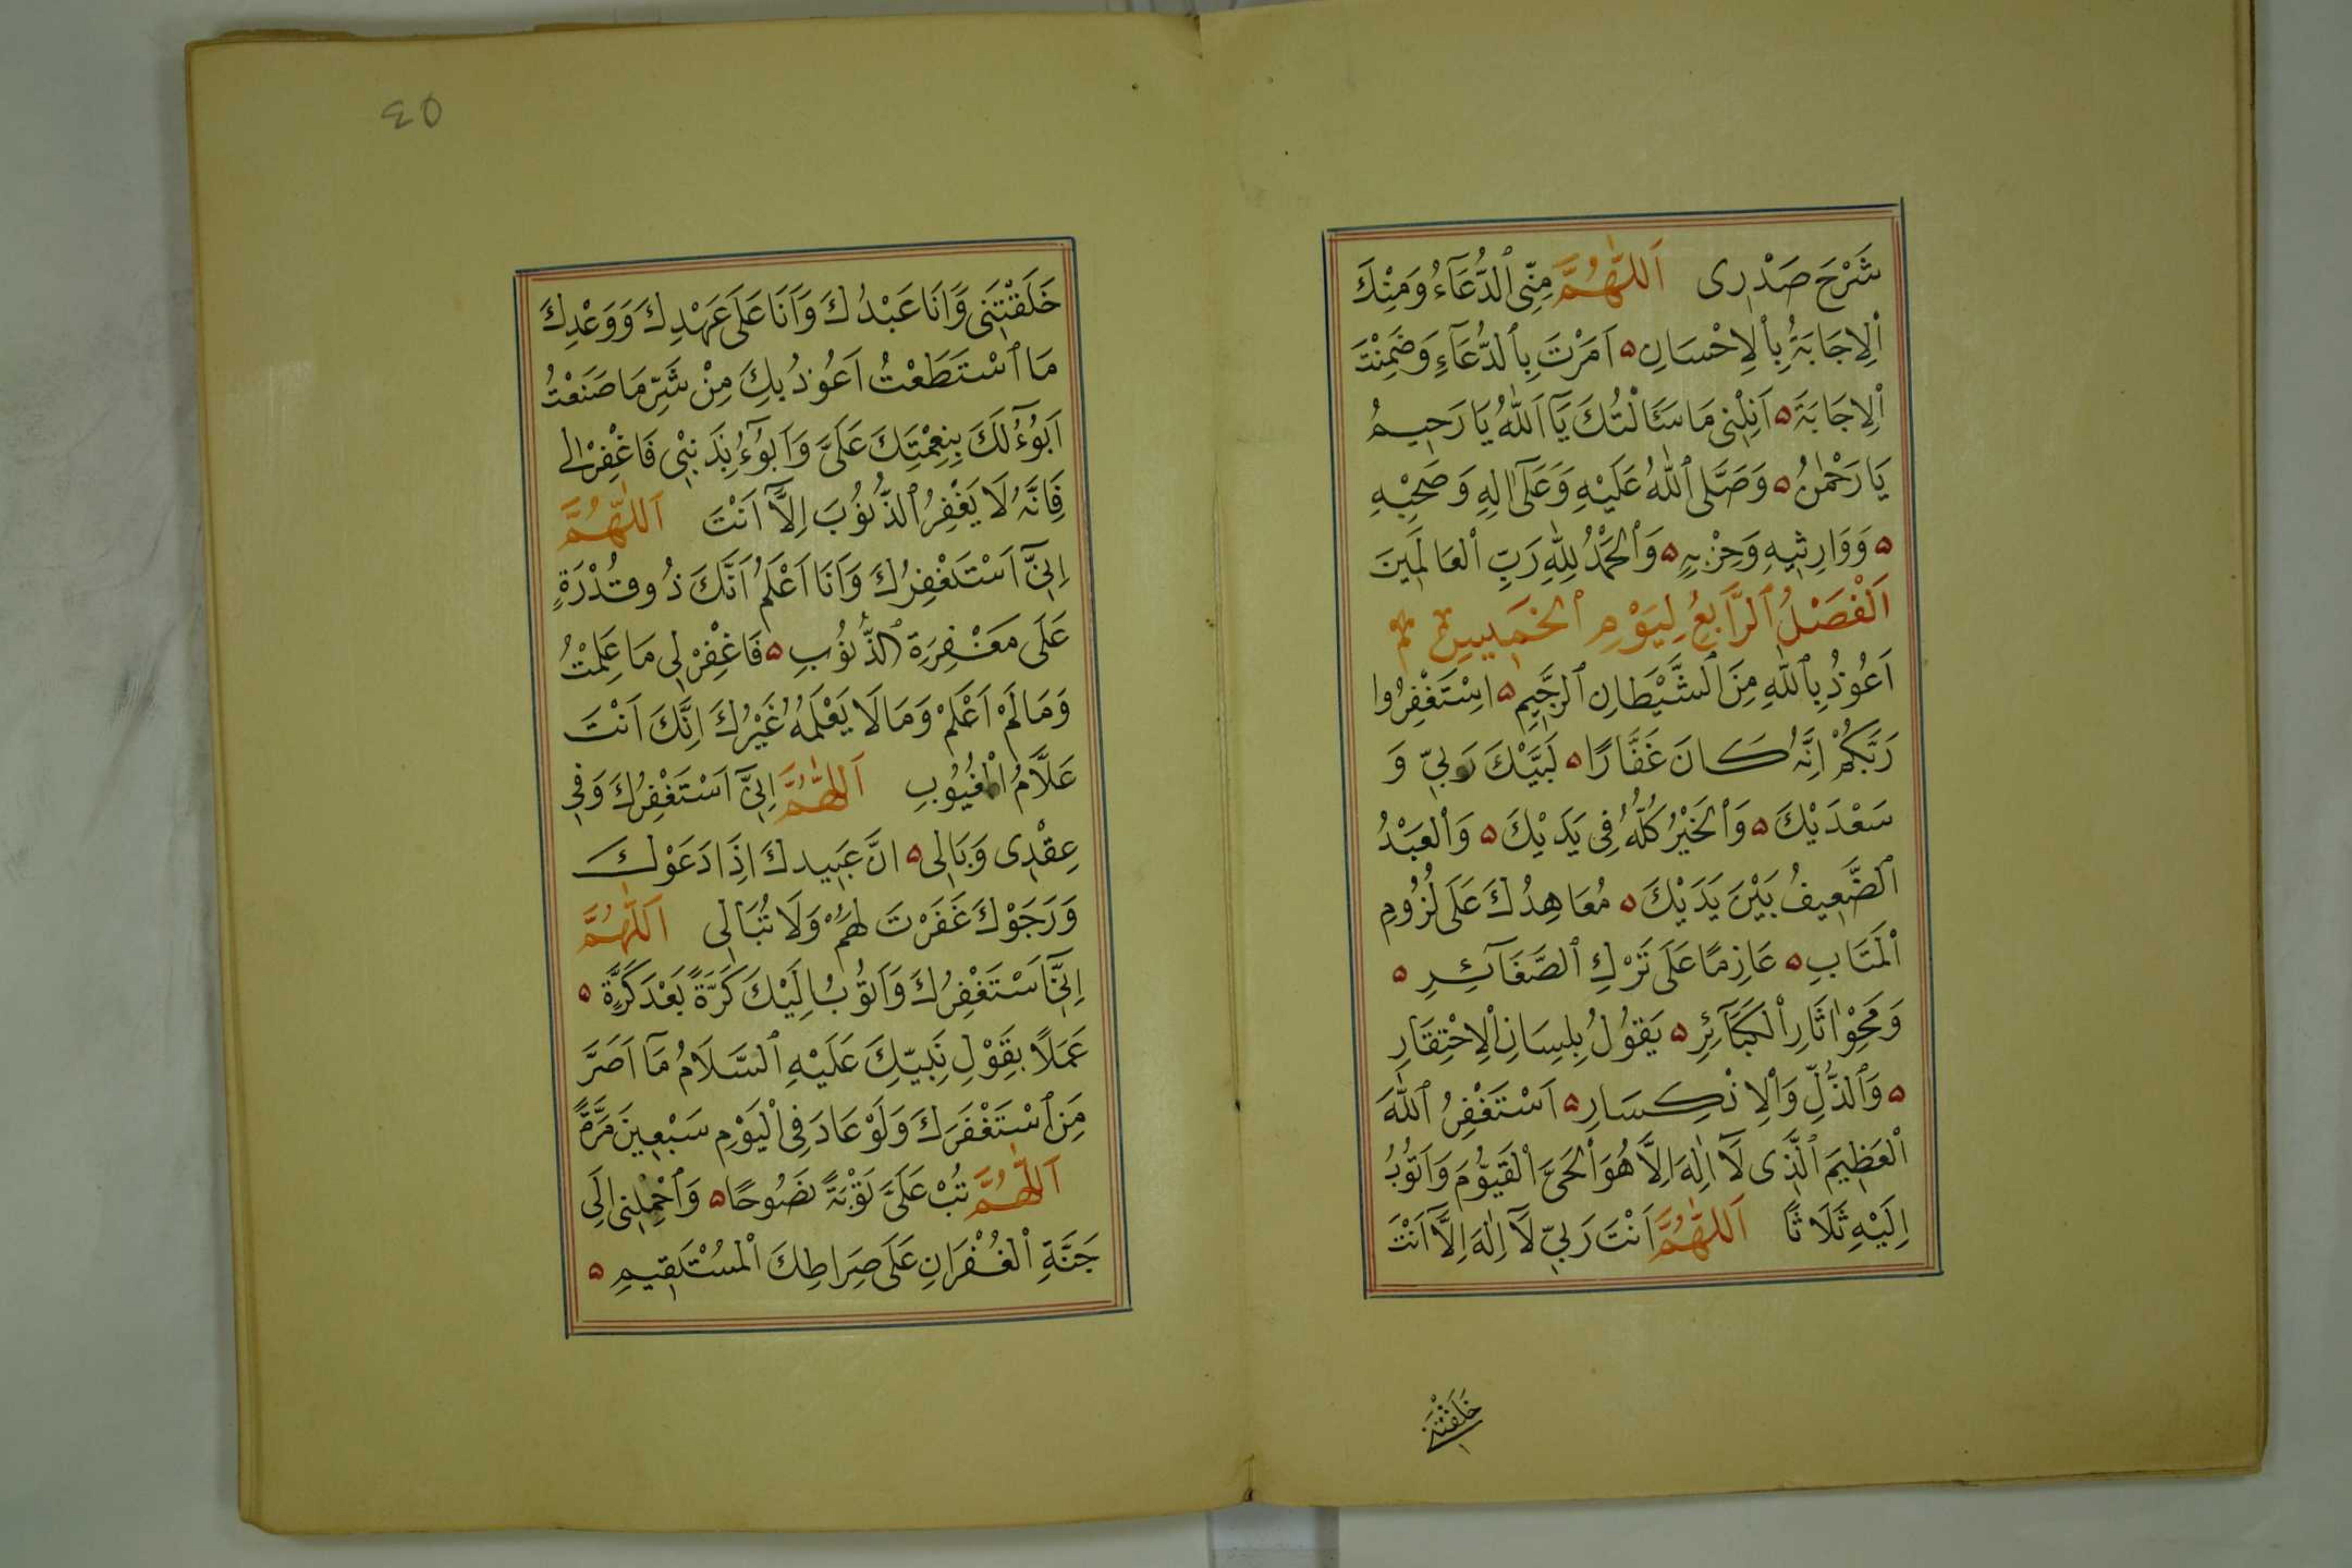 شَرْحَ صَدْرِى اَللّٰهُمَّ مِنِّى ٱلدُّعَآءُ وَمِنْكَ
ٱلْاِجَابَةُ بِٱلْاِحْسَانِ ه اَمَرْتَ بِٱلدُّعَآءِ وَضَمِنْتَ
ٱلْاِجَابَةَ ه اَنِلْنِى مَا سَئَالْتُكَ يَآ اَللّٰهُ يَا رَحِيمُ
يَا رَحْمٰنُ ه وَصَلَّى ٱللّٰهُ عَلَيْهِ وَعَلَىٓ اٰلِهِ وَصَحْبِهِ
ه وَوَارِثِيهِ وَحِزْبِهِ ه وَٱلْحَمْدُ لِلّٰهِ رَبِّ ٱلْعَالَمِينَ
اَلْفَصْلُ ٱلرَّابِعُ لِيَوْمِ ٱلْخَمِيسِ
اَعُوْذُ بِٱللّٰهِ مِنَ ٱلشَّيْطَانِ ٱلرَّجِيمِ ه اِسْتَغْفِرُوا
رَبَّكُمْ اِنَّهُ كَانَ غَفَّارًا ه لَبَّيْكَ رَبِّى وَ
سَعْدَيْكَ ه وَٱلْخَيْرُ كُلُّهُ فِى يَدَيْكَ ه وَٱلْعَبْدُ
ٱلضَّعِيفُ بَيْنَ يَدَيْكَ ه مُعَاهِدُكَ عَلَى لُزُومِ
ٱلْمَتَابِ ه عَازِمًا عَلَى تَرْكِ ٱلصَّغَآئِرِ ه
وَمَحْوِ اٰثَارِ ٱلْكَبَآئِرِ ه يَقُوْلُ بِلِسَانِ ٱلْاِحْتِقَارِ
ه وَٱلذُّلِّ وَٱلْاِنْكِسَارِ ه اَسْتَغْفِرُ ٱللّٰهَ
ٱلْعَظِيمَ ٱلَّذِى لَآ اِلٰهَ اِلَّا هُوَ ٱلْحَىَّ ٱلْقَيُّوْمَ وَاَتُوْبُ
اِلَيْهِ ثَلَاثًا اَللّٰهُمَّ اَنْتَ رَبِّى لَآ اِلٰهَ اِلَّآ اَنْتَ
خَلَقْتَنِى
٤٥
خَلَقْتَنِى وَاَنَا عَبْدُكَ وَاَنَا عَلَى عَهْدِكَ وَوَعْدِكَ
مَا ٱسْتَطَعْتُ اَعُوْذُ بِكَ مِنْ شَرِّ مَا صَنَعْتُ
اَبُوْٓءُ لَكَ بِنِعْمَتِكَ عَلَىَّ وَاَبُوْٓءُ بِذَنْبِى فَاغْفِرْ لِى
فَاِنَّهُ لَا يَغْفِرُ ٱلذُّنُوْبَ اِلَّآ اَنْتَ اَللّٰهُمَّ
اِنِّىٓ اَسْتَغْفِرُكَ وَاَنَا اَعْلَمُ اَنَّكَ ذُو قُدْرَةٍ
عَلَى مَغْفِرَةِ ٱلذُّنُوْبِ ه فَاغْفِرْ لِى مَا عَلِمْتُ
وَمَا لَمْ اَعْلَمْ وَمَا لَا يَعْلَمُهُ غَيْرُكَ اِنَّكَ اَنْتَ
عَلَّامُ الْغُيُوْبِ اَللّٰهُمَّ اِنِّىٓ اَسْتَغْفِرُكَ وَفِى
عِقْدِى وَبَالِى ه انَّ عَبِيدكَ اِذَا دَعَوْكَ
وَرَجَوْكَ غَفَرْتَ لَهُمْ وَلَا تُبَالِى اَللّٰهُمَّ
اِنِّىٓ اَسْتَغْفِرُكَ وَاَتُوْبُ اِلَيْكَ كَرَّةً بَعْدَ كَرَّةٍ ه
عَمَلًا بِقَوْلِ نَبِيِّكَ عَلَيْهِ ٱلسَّلَامُ مَآ اَصَرَّ
مَنِ ٱسْتَغْفَرَكَ وَلَوْ عَادَ فِى ٱلْيَوْمِ سَبْعِينَ مَرَّةً
اَللّٰهُمَّ تُبْ عَلَىَّ تَوْبَةً نَصُوحًا ه وَٱحْمِلْنِى اِلَى
جَنَّةِ ٱلْغُفْرَانِ عَلَى صِرَاطِكَ ٱلْمُسْتَقِيمِ ه